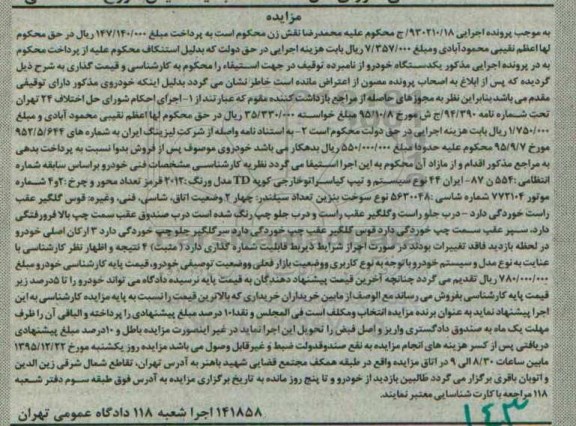 مزایده
به موجب پرونده اجرایی ۹۳۰۲۱۰/۱۸/ج محکوم علیه محمدرضا نقش زن محکوم است به پرداخت مبلغ ۱۴۷/۱۴۰/۰۰۰ ریال در حق محکوم
لها اعظم نقیبی محمودآبادی ومبلغ ۷/۳۵۷/۰۰۰ ریال بابت هزینه اجرایی در حق دولت که بدلیل استنکاف محکوم علیه از پرداخت محکوم
به در پرونده اجرایی مذکور یکدستگاه خودرو از نامبرده توقیف در جهت استیفاء را محکوم به کارشناسی و قیمت گذاری به شرح ذیل
گردیده که پس از ابلاغ به اصحاب پرونده مصون از اعتراض مانده است خاطر نشان می گردد بدلیل اینکه خودروی مذکور دارای توقیفی
مقدم می باشد بنابراین نظر به مجوزهای حاصله از مراجع بازداشت کننده مقوم که عبارتند از ۱- اجرای احکام شورای حل اختلاف ۲۴ تهران
تحت شماره نامه ۹۴/۳۹۰/ج ش مورخ ۹۵/۱۰/۸ مبلغ خواسته ۳۵/۳۳۰/۰۰۰ ریال در حق محکوم لها اعظم نقیبی محمود آبادی و مبلغ
۱/۷۵۰/۰۰۰ ریال بابت هزینه اجرایی در حق دولت محکوم است ۲- به استناد نامه واصله از شرکت لیزینگ ایران به شماره های ۹۵۲/۵/۶۴۴
مورخ ۹۵/۹/۷ محکوم علیه حدودا مبلغ ۵۵۰/۰۰۰/۰۰۰ ریال بدهکار می باشد خودروی موصوف پس از فروش بدوا نسبت به پرداخت بدهی
به مراجع مذکور اقدام و از مازاد آن محکوم به این اجرا استیفا می گردد نظریه کارشناسی مشخصات فنی خودرو براساس سابقه شماره
انتظامی : ۵۵۴ن ۸۷- ایران ۴۴ نوع سیستم و تیپ کیاسراتوخارجی کوپه TD مدل ورنگ :۲۰۱۲ قرمز تعداد محور و چرخ :۲و۴ شماره
موتور ۷۷۳۱۰۴ شماره شاسی :۵۶۳۰۰۴۸ نوع سوخت بنزین تعداد سیلندر: چهار ۲ وضعیت اتاق، شاسی، فنی، وغیره: قوس گلگیر عقب
راست خوردگی دارد - درب جلو راست وگلگیر عقب راست و درب جلو چپ رنگ شده است درب صندوق عقب سمت چپ بالا فرورفتگی
دارد، سپر عقب سمت چپ خوردگی دارد قوس گلگیر عقب چپ خوردگی دارد سرگلگیر جلو چپ خوردگی دارد ۳ ارکان اصلی خودرو
در لحظه بازدید فاقد تغییرات بودند در صورت احراز شرایط ذیربط قابلیت شماره گذاری دارد ( مثبت) ۴ نتیجه و اظهار نظر کارشناسی با
عنایت به نوع مدل و سیستم خودرو باتوجه به نوع کاربری ووضعیت بازار فعلی ووضعیت توصیفی خودرو، قیمت پایه کارشناسی خودرو مبلغ
۷۸۰/۰۰۰/۰۰۰ ریال تقدیم می گردد چنانچه آخرین قیمت پیشنهاد دهندگان به قیمت پایه نرسیده دادگاه می تواند خودرو را تا ۵درصد زیر
قیمت پایه کارشناسی بفروش می رساند مع الوصف از مابین خریداران خریداری که بالاترین قیمت را نسبت به پایه مزایده کارشناسی به این
اجرا پیشنهاد نماید به عنوان برنده مزایده انتخاب ومکلف است فی المجلس و نقدا ۱۰ درصد مبلغ پیشنهادی را پرداخته و الباقی آن را ظرف
مهلت یک ماه به صندوق دادگستری واریز و اصل فیش را تحویل این اجرا نماید در غیر اینصورت مزایده باطل و ۱۰درصد مبلغ پیشنهادی
دریافتی پس از کسر هزینه های انجام مزایده به نفع صندوقدولت ضبط و غیرقابل وصول می باشد مزایده روز یکشنبه مورخ ۱۳۹۵/۱۲/۲۲
مابین ساعات ۸/۳۰ الی ۹ در اتاق مزایده واقع در طبقه همکف مجتمع قضایی شهید باهنر به آدرس تهران، تقاطع شمال شرقی زین الدین
و اتوبان باقری برگزار می گردد طالبین بازدید از خودرو و تا پنج روز مانده به تاریخ برگزاری مزایده به آدرس فوق طبقه سوم دفتر شعبه
۱۱۸ مراجعه با کارت شناسایی معتبر نمایند.
۱۴۱۸۵۸ اجرا شعبه ۱۱۸ دادگاه عمومی تهران
۱۴۳